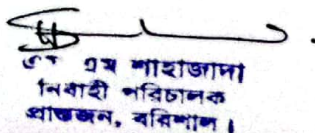 এম শাহাজাদা
নির্বাহী পরিচালক
প্রান্তজন, বরিশাল।